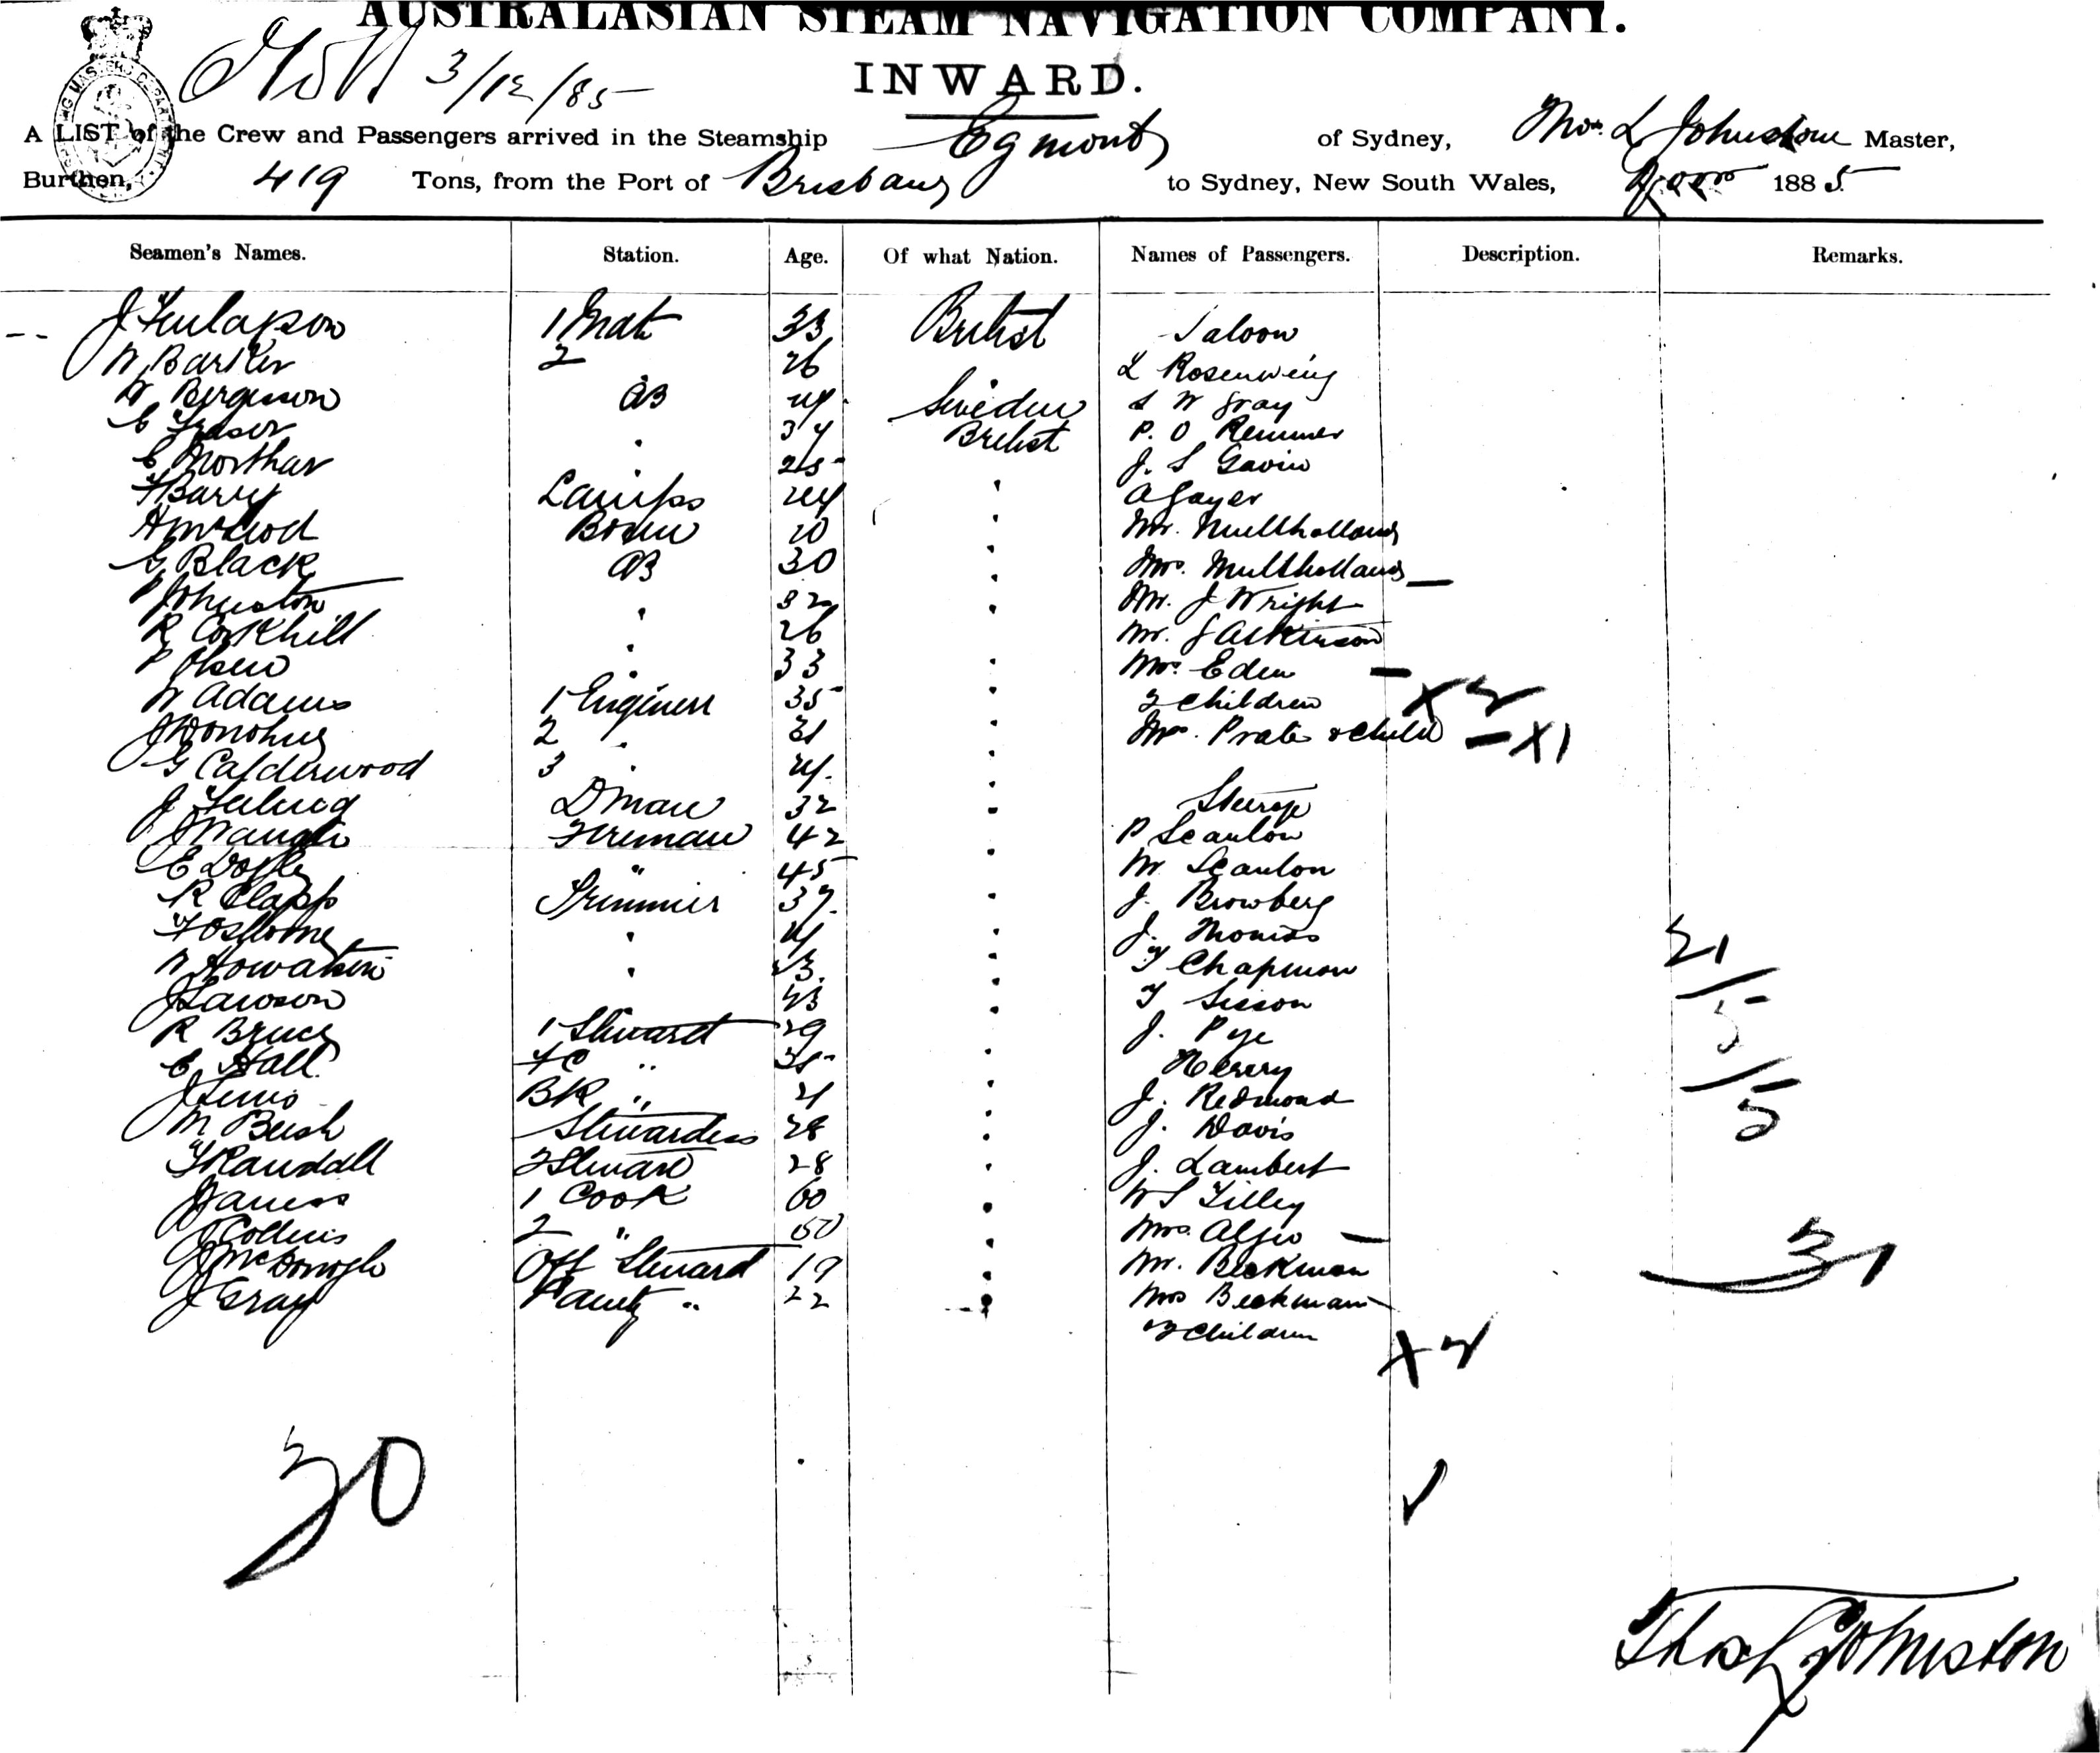 AUSTRALASIAN STEAM NAVIGATION COMPANY.
3/12/85
INWARD.
A LIST of the Crew and Passengers arrived in the Steamship Egmont of Sydney, Thos. L Johnston Master,
Burthen, 419 Tons, from the Port of Brisbane to Sydney, New South Wales, 1885
Seamen's Names. Station. Age. Of what Nation. Names of Passengers. Description. Remarks.
J Finlayson 1 Mate 33 British Saloon
W Barker 2 26 L Rosenweig
Bergesson AB Sweden S W Gray
Fraser . 34 British P. O Remmer
25 J. S Gavin
Barry Lamps 24 " A Gayer
McLeod Bosun " Mr. Mullholland
G Black AB 30 " Mrs. Mullholland —
P Johnston " 32 " Mr. J Wright
R Corkhill " 26 Mr. J Atkinson
P Olsen " 33 " Mrs Eden —
W Adams 1 Engineer 35 " 2 Children X 2
J Donohue 2 " 31 " Mrs. Prate & Child — X 1
G Calderwood 3 " "
J D man 32 " Steerage
J Waugh Fireman 42 P Scanlon
E Doyle " 45 " M Scanlon
R Clapp Trimmer 37. " J. Browberg
F Osborne " " J. Thomas 21
" 23. " T Chapman
J Lawson 43 " T Sisson
R Bruce 1 Steward 29 J. Pye
E Hall FC " 35 " Henry
J BK " 21 " J. Redmond
M Bush Stewardess 28 " J. Davis
F Randall 2 Steward 28 " J. Lambert
James 1 Cook 60 " W S Tilley
J Collins 2 " 50 " Mrs. Algie —
J McDonogh Off Steward 19 " Mr. Beckman 31
J Gray Pantry " 22 " Mrs Beckman —
2 Children X 2
30
Thos L Johnston